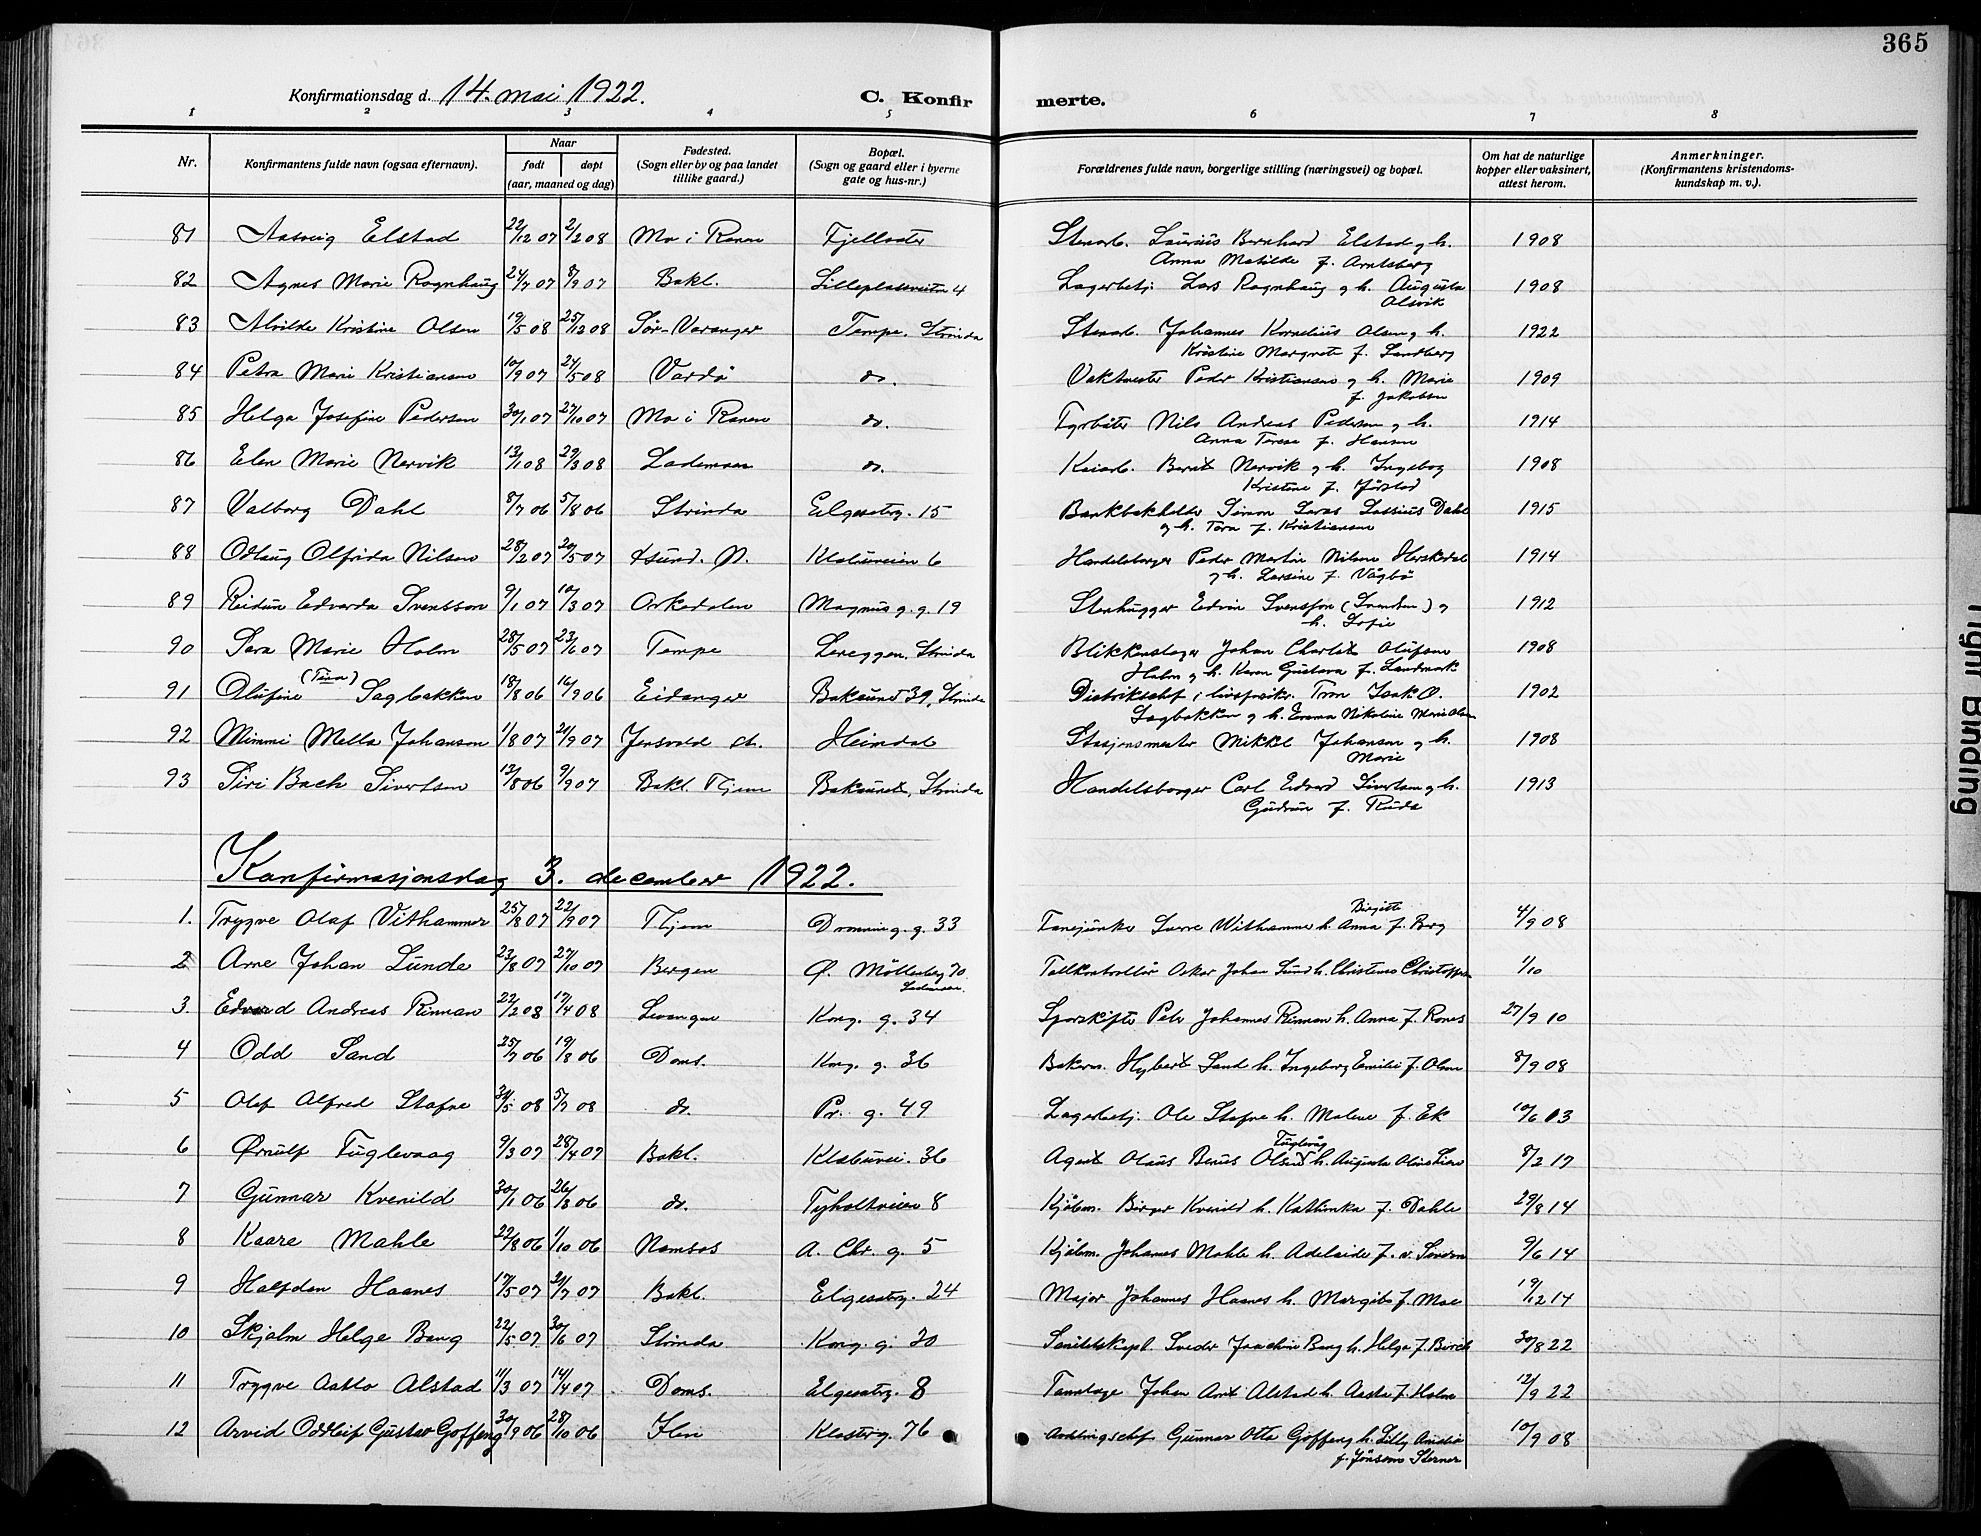 365
Konfirmationsdag d. 14. mai 1922.
C. Konfirmerte.
1 2 3 4 5 6 7 8
Nr.
Konfirmantens fulde navn (ogsaa efternavn).
Naar
født
døpt
(aar, maaned og dag)
Fødested.
(Sogn eller by og paa landet
tillike gaard.)
Bopæl.
(Sogn og gaard eller i byerne
gate og hus-nr.)
Forældrenes fulde navn, borgerlige stilling (næringsvei) og bopæl.
Om hat de naturlige
kopper eller vaksinert,
attest herom.
Anmerkninger.
(Konfirmantens kristendoms-
kundskap m. v.).
81 Elstad 22/12 07 2/2 08 Mo i Ranen Stenarb. Laurius Bernhard Elstad og h. 1908
Anna Matilde f. Arntsberg
82 Agnes Marie Rognhaug 24/7 07 8/9 07 Bakl. 4 Lagerbetj. Lars Rognhaug og h. Augusta 1908
Olsvik
83 Alvilde Kristine Olsen 19/5 08 25/12 08 Sør-Varanger Tempe, Strinda Stenarb. Johannes Kornelius Olsen og h. 1922
Kristine Margrete f. Sandberg
84 Petra Marie Kristiansen 10/9 07 24/5 08 Vardö do. Vaktmester Peder Kristiansen og h. Marie 1909
f. Jakobsen
85 Helga Josefine Pedersen 30/1 07 27/10 07 Mo i Ranen do. Fyrbøter Nils Andreas Pedersen og h. 1914
Anna Terese f. Hansen
86 Elen Marie Nervik 13/1 08 29/3 08 Lademoen do. Kaiarb. Bernt Nervik og h. Ingebog 1908
Kristine f. Jörstad
87 Valborg Dahl 8/7 06 5/8 06 Strinda Elgesetrg. 15 Bankbokholder Simon Dahl 1915
og h. Tora f. Kristiansen
88 Odlaug Olfrida Nilsen 28/2 07 20/5 07 Ksund. N. Klæbuveien 6 Handelsborger Peder Martin Nilsen Herskedal 1914
og h. Larsine f. Vågbö
89 Reidun Edvarda Svensson 9/1 07 10/3 07 Orkedalen Magnus g. g. 19 Stenhugger Edvin Svensson (Svendsen) og 1912
h. Sofie
90 Sara Marie Holm 28/5 07 23/6 07 Tempe Lereggen, Strinda Blikkenslager Johan Charlet Olufsen 1908
Holm og h. Karen Gustava f. Landmark
91 Olufine (Tina) Sagbakken 18/8 06 16/9 06 Eidanger Baksund 39, Strinda Distriktschef i livsforsikr. Tron Isak O. 1902
Sagbakken og h. Emma Nikoline Marie Olsen
92 Mimmi Mella Johansen 1/8 07 21/9 07 Jensvold st. Heimdal Stasjonsmester Mikkel Johansen og h. 1908
Marie
93 Siri Bach Sivertsen 13/8 06 9/9 07 Bakl. Thjem Baksund, Strinda Handelsborger Carl Edvard Sivertsen og h. 1913
Gudrun f. Ruda
Konfirmasjonsdag 3. december 1922.
1. Trygve Olaf Vithammer 25/8 07 22/9 07 Thjem Dronning. g. 33 Withammer h. Anna Birgitte f. Berg 4/9 08
2 Arne Johan Lunde 23/8 07 27/10 07 Bergen Ø. Möllenberg 70 Tollkontrollör Oskar Johan Lund h. 1/10
Lademoen.
3. Edvard Andreas Rinnan 22/2 08 17/4 08 Levanger Kong. g. 34 Sporskifter Petr Johannes Rinnan h. Anna f. Rones 27/9 10
4 Odd Sand 25/7 06 19/8 06 Doms. Kong. g. 36 Bakerm. Hybert Sand h. Ingeborg Emilie f. Olsen 8/9 08
5 Olaf Alfred Stafne 31/5 08 5/7 08 do. Pr. g. 49 Lagerbetj. Ole Stafne h. Malene f. Ek 10/6 13
6 Ørnulf Fuglevaag 9/3 07 28/4 07 Bakl. Klæbuvei. 36 Agent Olaus Benus Olsen Fuglevåg h. Augusta 8/2 17
7 Gunnar Kvenild 30/1 06 26/3 06 do. Tyholtveien 8 Kjöbm. Birger Kvenild h. Kathinka f. Dahle 29/8 14
8 Kaare Mahle 22/8 06 1/10 06 Namsos A. Chr. g. 5 Kjöbm. Johannes Mahle h. Adelaide f. v. 9/6 14
9 Halfdan Haanes 17/5 07 21/7 07 Bakl. Elgesetrg. 24 Major Johannes Haanes h. Margite f. Moe 19/12 14
10 Skjalm Helge Bang 22/5 07 30/6 07 Strinda Kong. g. 30 Sanitetskapt. Joachim Bang h. Helga f. Birch 30/8 22
11 Trygve Aasto Alstad 11/3 07 14/4 07 Doms. Elgesetrg. 8 Tannlæge Johan Arnt Alstad h. Aasta f. Holm 12/9 22
12 Arvid Oddleif Gustav Goffeng 30/9 06 28/10 06 Ilen Klostrg. 76 Avdelingschef Gunnar Otto Goffeng h. Lilly 10/9 08
f. Jönsson Sterner
Tight Binding